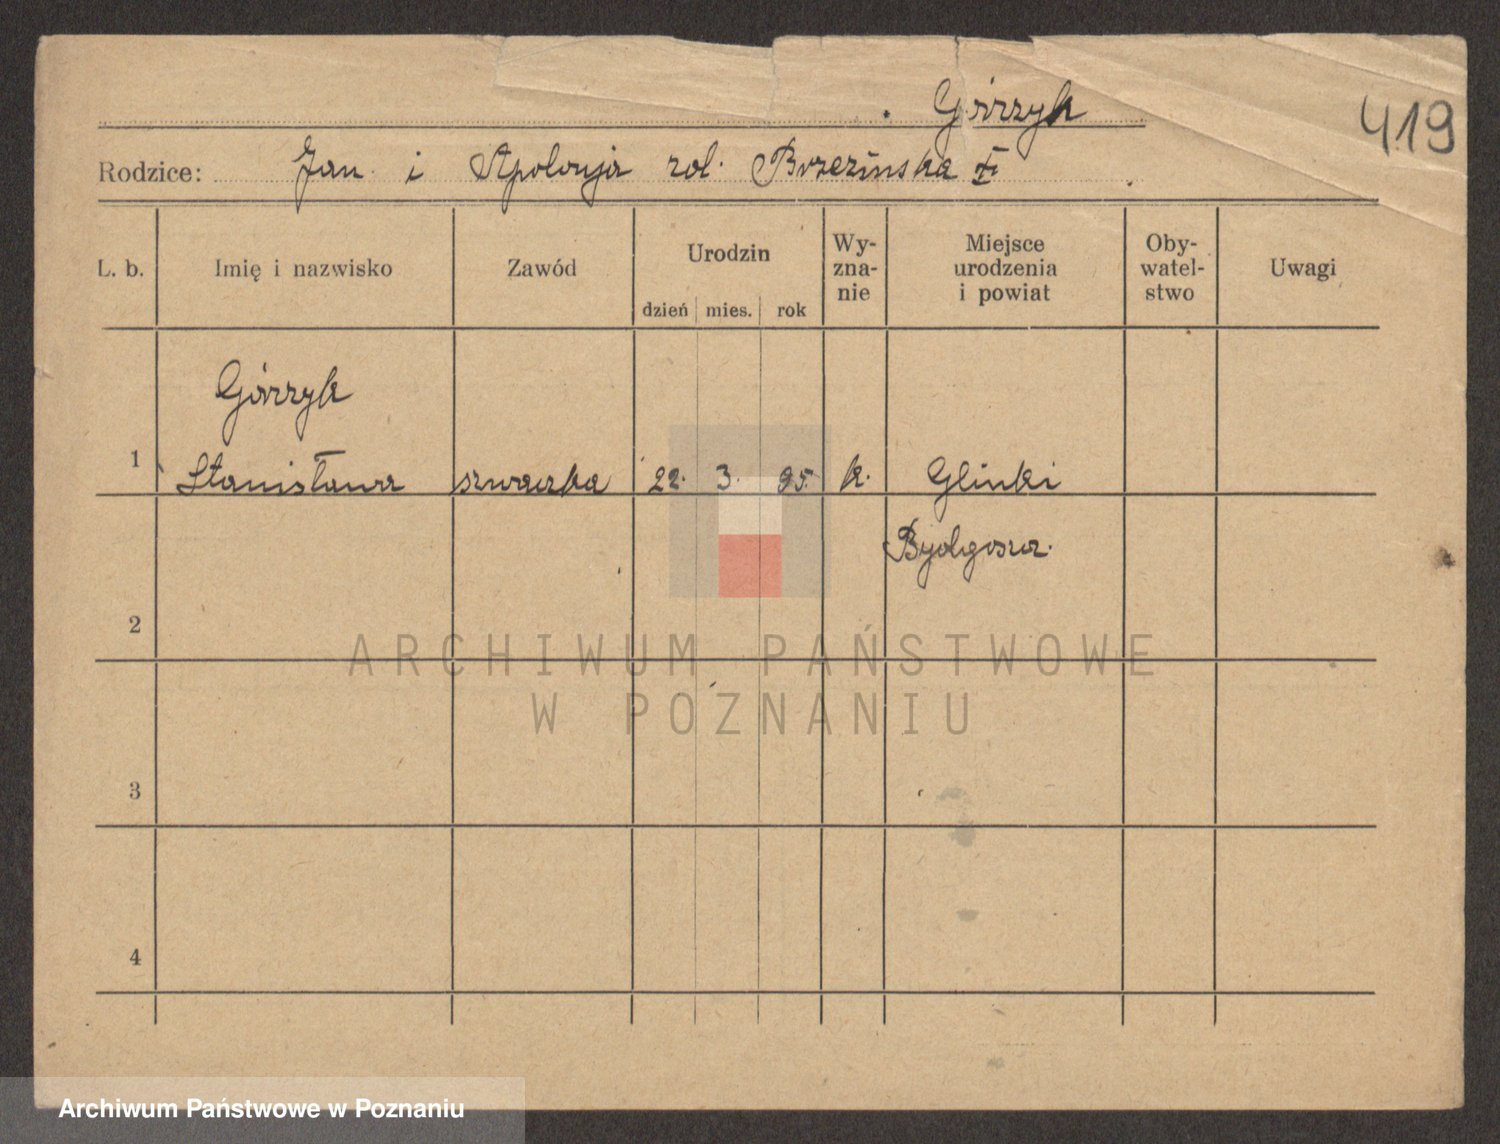 . Górzyk
419
Rodzice: Jan i Apolonja rol. Brzezińska
L. b. Imię i nazwisko Zawód Urodzin Wy-zna-nie Miejsce urodzenia i powiat Oby-watel-stwo Uwagi
dzień mies. rok
Górzyk
1 Stanisława szwaczka 22. 3. 95. k. Glinki
Bydgoszcz.
2
ARCHIWUM PAŃSTWOWE
W POZNANIU
3
4
Archiwum Państwowe w Poznaniu